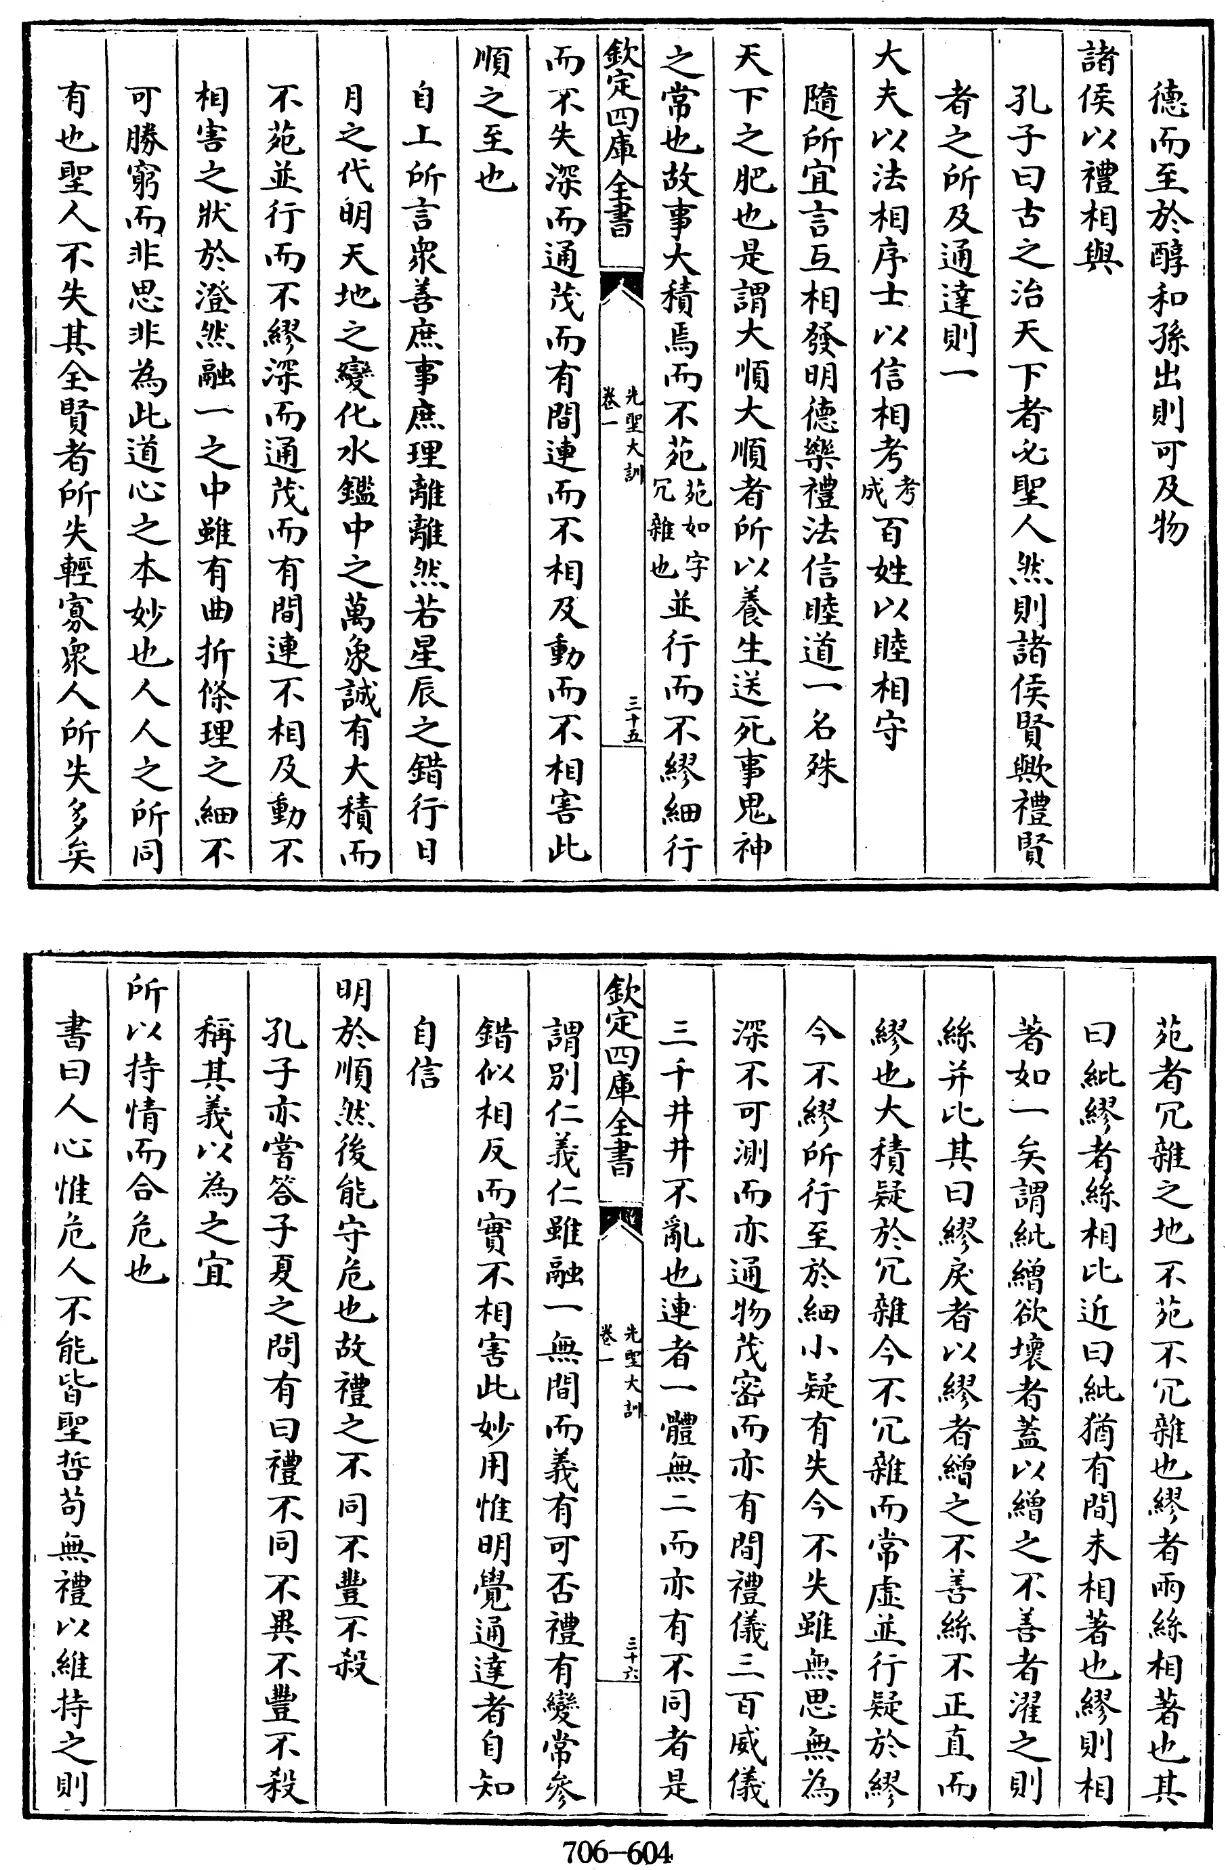 德而至於醇和孫出則可及物
諸侯以禮相與
孔子曰古之治天下者必聖人然則諸侯賢歟禮賢
者之所及通達則一
大夫以法相序士以信相考考成百姓以睦相守
隨所宜言互相發明德樂禮法信睦道一名殊
天下之肥也是謂大順大順者所以養生送死事鬼神
之常也故事大積焉而不苑苑如字冗雜也並行而不繆細行
欽定四庫全書
先聖大訓
卷一
三十五
而不失深而通茂而有間連而不相及動而不相害此
順之至也
自上所言衆善庶事庶理離離然若星辰之錯行日
月之代明天地之變化水鑑中之萬象誠有大積而
不苑並行而不繆深而通茂而有間連不相及動不
相害之狀於澄然融一之中雖有曲折條理之細不
可勝窮而非思非為此道心之本妙也人人之所同
有也聖人不失其全賢者所失輕寡衆人所失多矣
苑者冗雜之地不苑不冗雜也繆者兩絲相著也其
曰紕繆者絲相比近曰紕猶有間未相著也繆則相
著如一矣謂紕繒欲壞者蓋以繒之不善者濯之則
絲并比其曰繆戾者以繆者繒之不善絲不正直而
繆也大積疑於冗雜今不冗雜而常虛並行疑於繆
今不繆所行至於細小疑有失今不失雖無思無為
深不可測而亦通物茂密而亦有間禮儀三百威儀
三千井井不亂也連者一體無二而亦有不同者是
欽定四庫全書
先聖大訓
卷一
三十六
謂別仁義仁雖融一無間而義有可否禮有變常參
錯似相反而實不相害此妙用惟明覺通達者自知
自信
明於順然後能守危也故禮之不同不豐不殺
孔子亦嘗答子夏之問有曰禮不同不異不豐不殺
稱其義以為之宜
所以持情而合危也
書曰人心惟危人不能皆聖哲苟無禮以維持之則
706-604